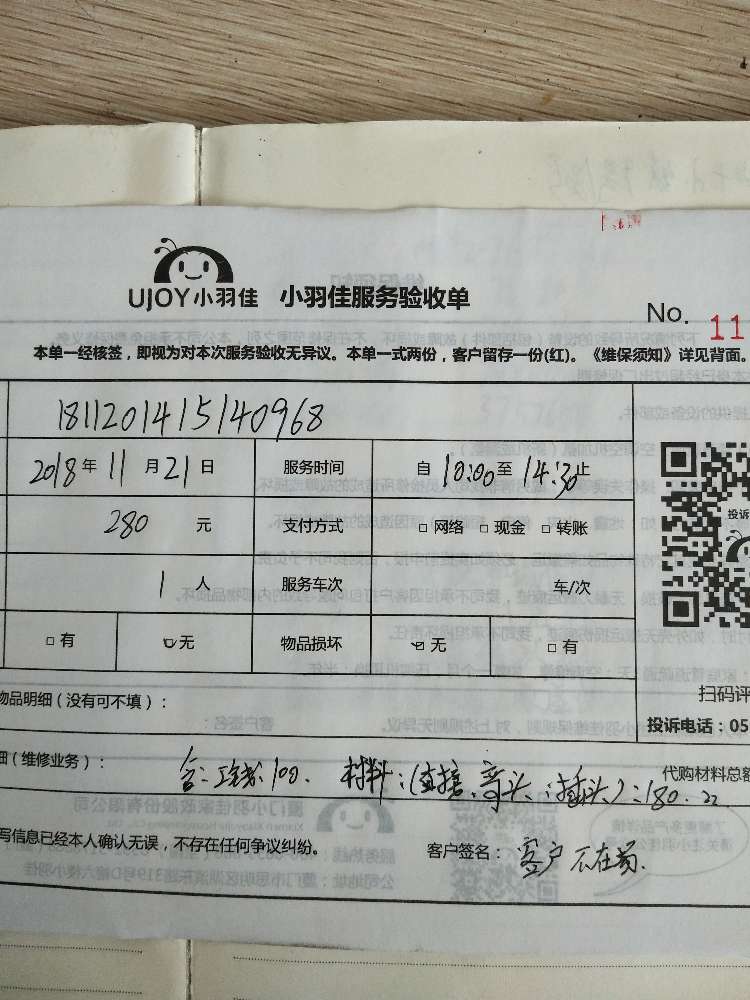 UJOY小羽佳 小羽佳服务验收单
No. 11
本单一经核签，即视为对本次服务验收无异议。本单一式两份，客户留存一份(红)。《维保须知》详见背面。
1811201415140968
2018年11月21日 服务时间 自10:00至14:30止
280元 支付方式 □网络 □现金 □转账
投诉
1人 服务车次 车/次
□有 ☑无 物品损坏 ☑无 □有
物品明细（没有可不填）： 扫码评
投诉电话：05
细（维修业务）： 含：工钱：100. 材料：(直接、弯头、插头)：180. 代购材料总额
写信息已经本人确认无误，不存在任何争议纠纷。 客户签名： 客户不在岛.